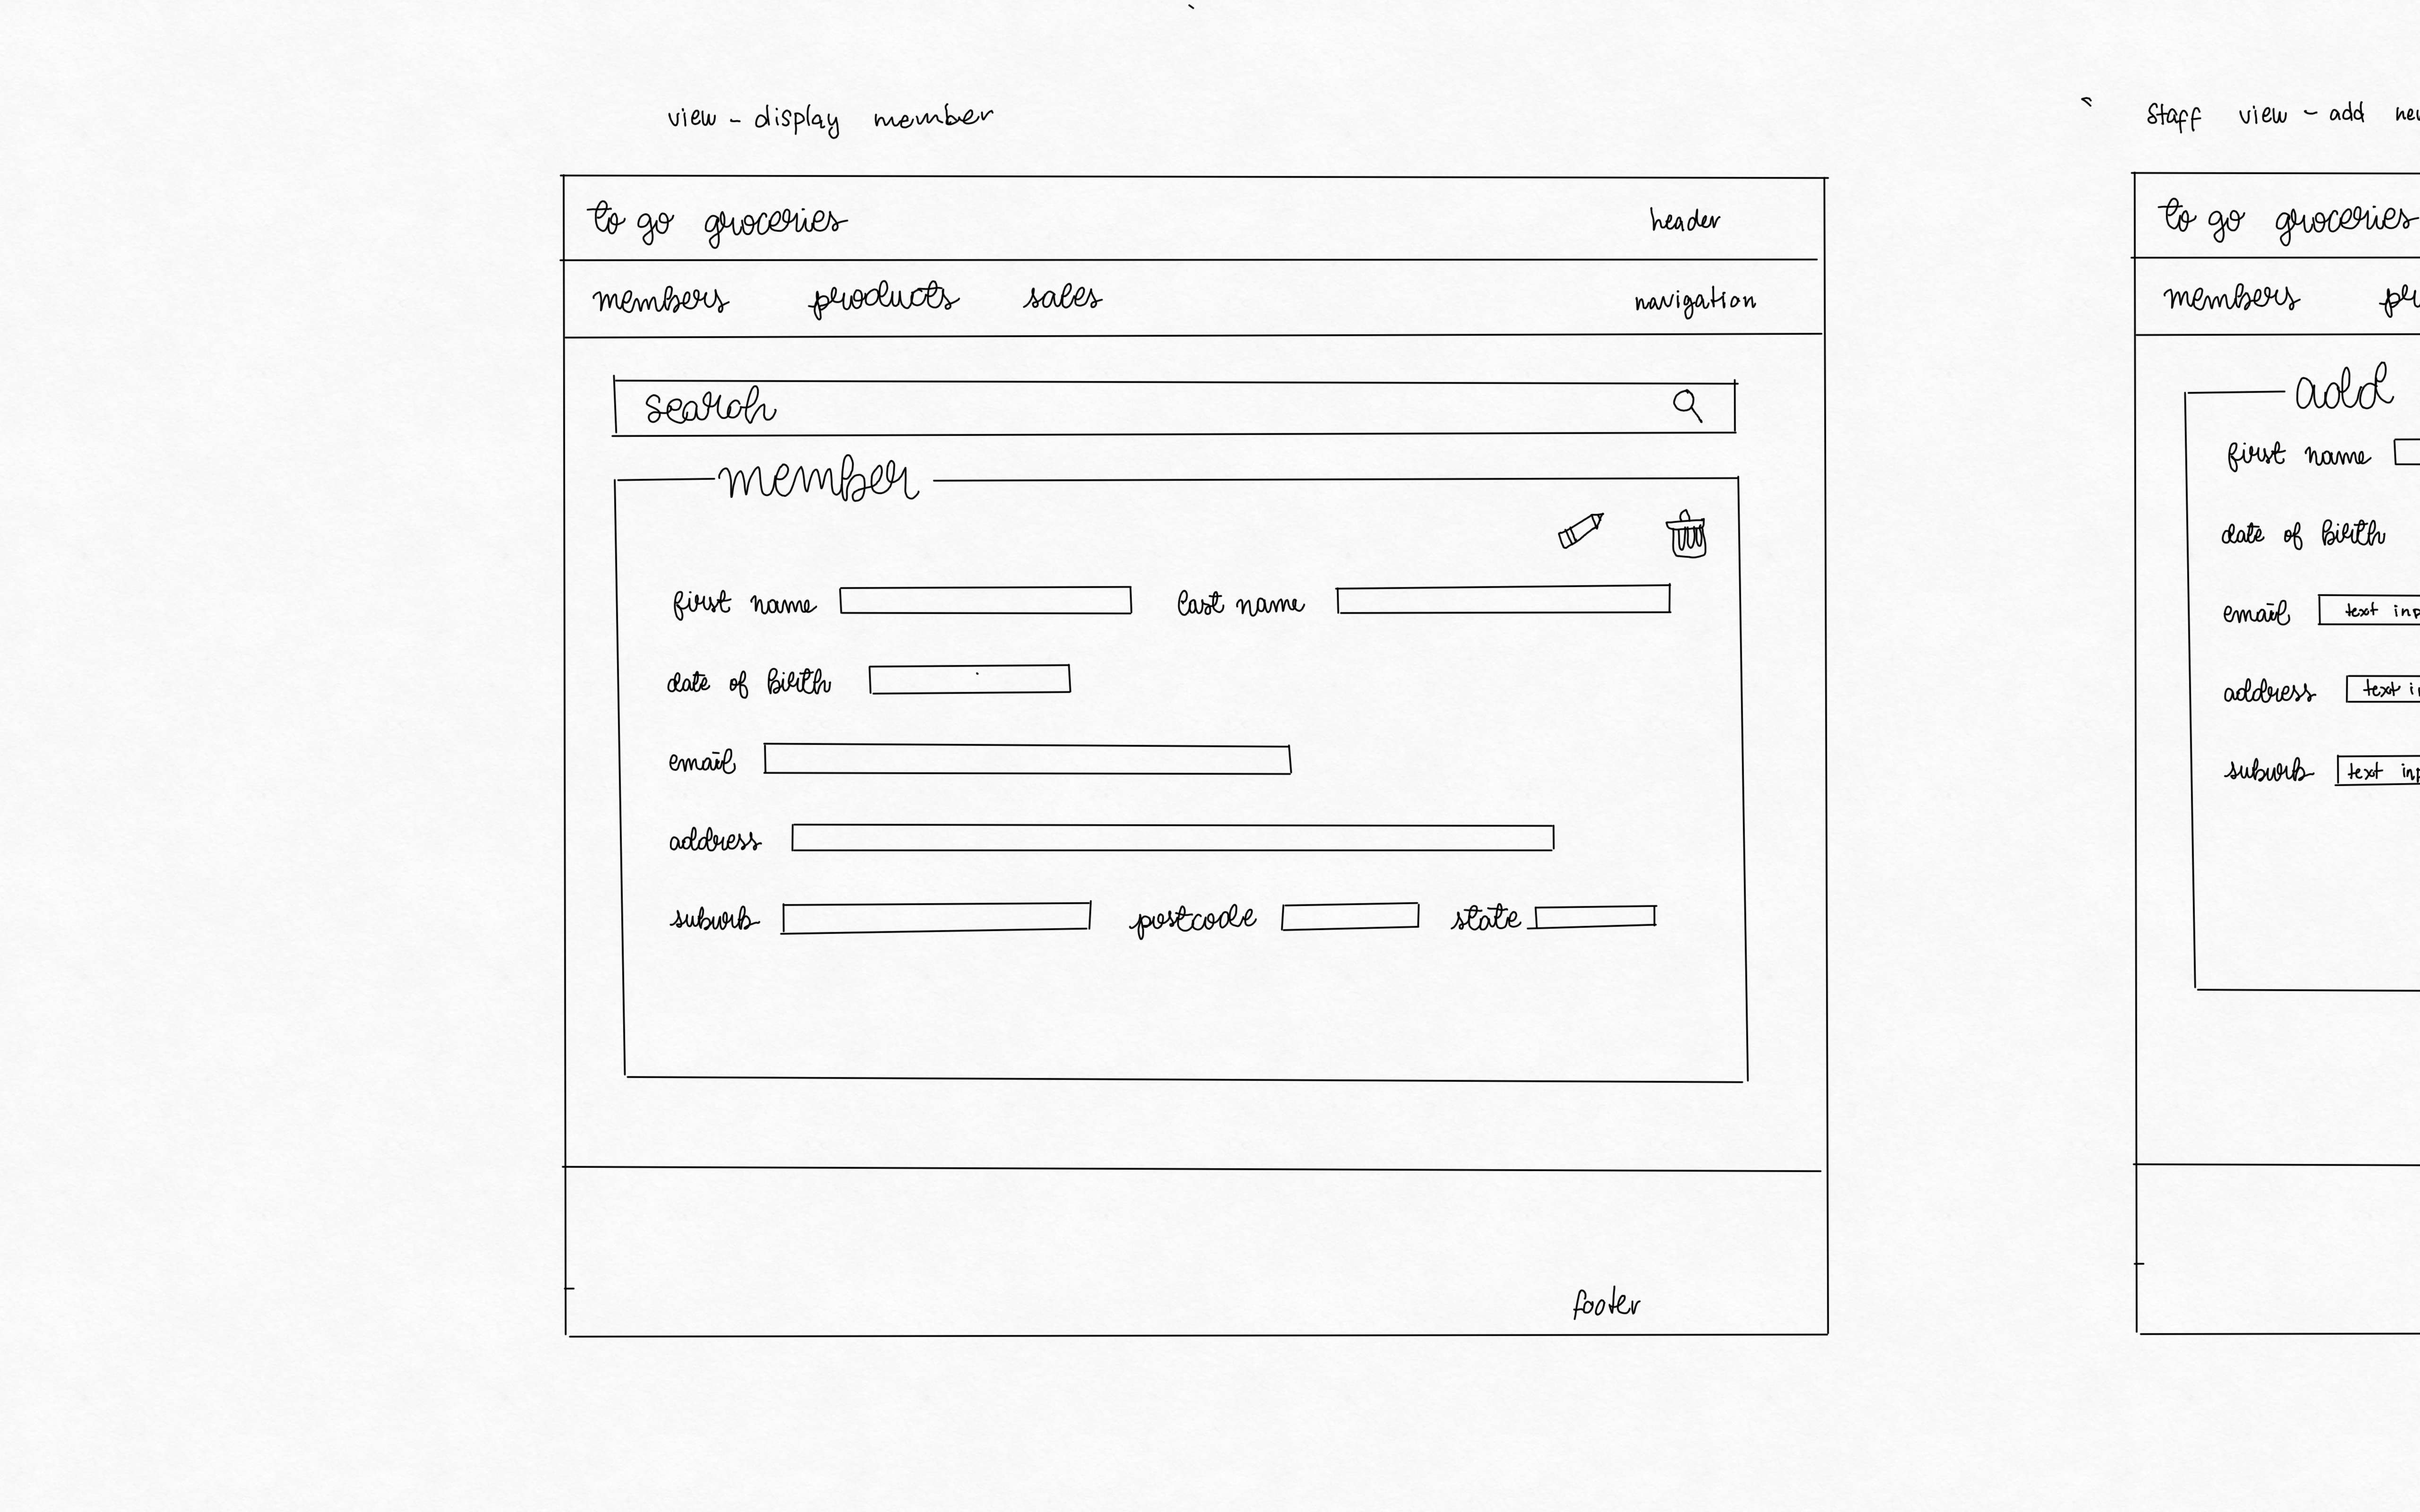 view - display member
to go groceries header
members products sales navigation
search
member
first name last name
date of birth
email
address
suburb postcode state
footer
Staff view - add
to go groceries
members
add
first name
date of birth
email text
address text
suburb text